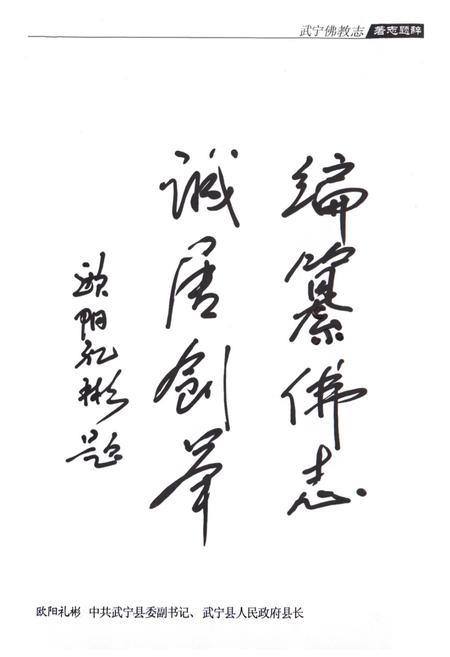 武宁佛教志 著志题辞
编纂佛志
诚属创举
欧阳礼彬题
欧阳礼彬 中共武宁县委副书记、武宁县人民政府县长